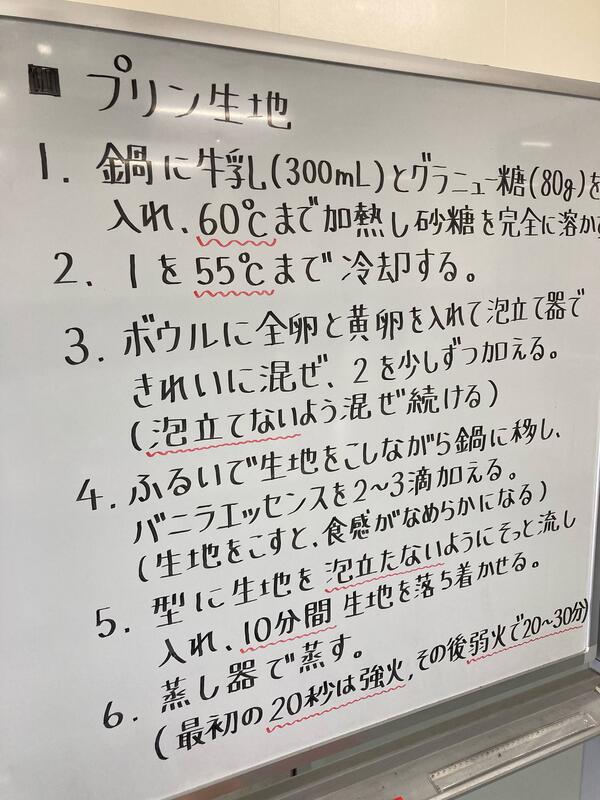 ■ プリン生地
1. 鍋に牛乳(300mL)とグラニュー糖(80g)を
入れ、60℃まで加熱し砂糖を完全に溶かす
2. 1を55℃まで冷却する。
3. ボウルに全卵と黄卵を入れて泡立て器で
きれいに混ぜ、2を少しずつ加える。
(泡立てないよう混ぜ続ける)
4. ふるいで生地をこしながら鍋に移し、
バニラエッセンスを2～3滴加える。
(生地をこすと、食感がなめらかになる)
5. 型に生地を泡立たないようにそっと流し
入れ、10分間生地を落ち着かせる。
6. 蒸し器で蒸す。
(最初の20秒は強火,その後弱火で20～30分)